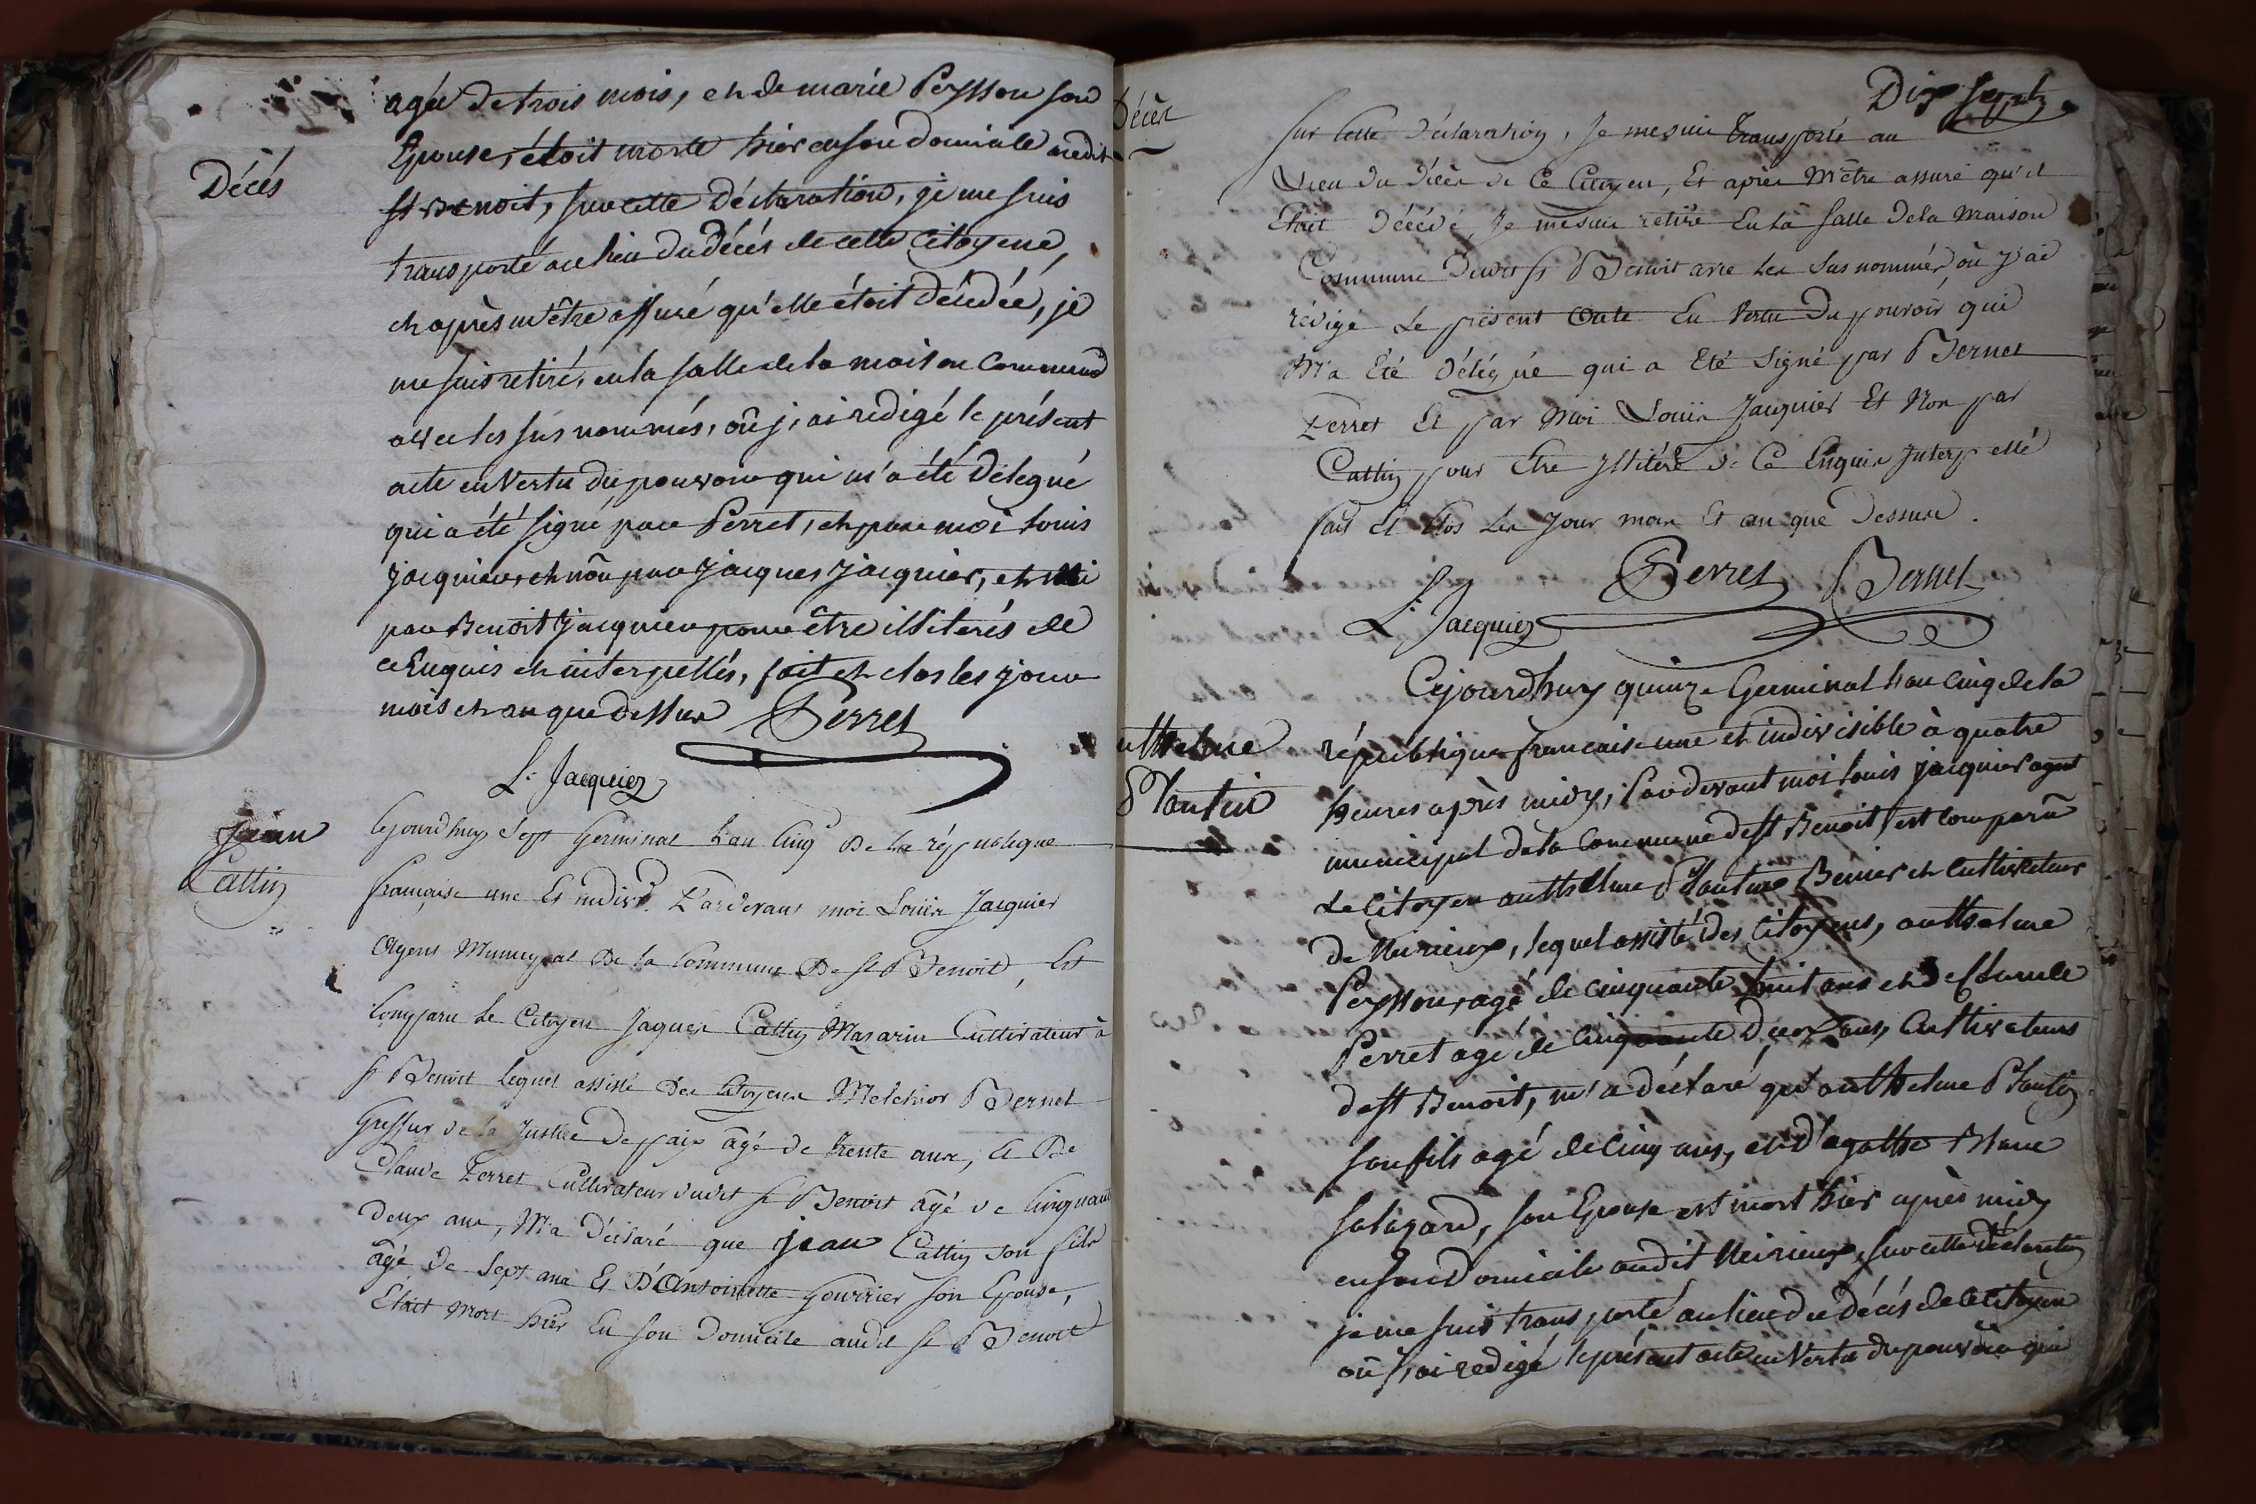 Décés
agée de trois mois, et de marie Peysson son
Epouse, étoit morte hier en son domicile audit
st Benoit, sur cette Déclaration, je me suis
transporté au lieu du décés de cette Citoyene,
et après m'être assuré qu'elle étoit décédée, je
me suis retiré, en la salle de la maison Commune
avec les sus nommés, où j,ai redigé le présent
acte en vertu du pouvoir qui m'a été délegué
qui a été signé par Perret, et par moi Louis
Jacquier, et non par Jacques Jacquier, et
par Benoit Jacquier pour être illiterés de
ce Enquis et interpellés, fait et clos les jour
mois et an que dessus Perret
L. Jacquier
jean
Cattin
Cejourdhuy Sept Germinal L'an Cinq De La république
française une Et indiv. Pardevant moi Louis Jacquier
Agent Municipal De la Commune De st Benoit, Est
Comparu Le Citoyen Jaques Cattin Mazarin Cultivateur à
st Benoit lequel assisté Des Citoyens Melchior Bernet
Greffier de la Justice De paix âgé de trente ans, Et De
Claude Perret Cultivateur dudit st Benoit âgé de Cinquante
deux ans, M'a Déclaré que jean Cattin son fils
âgé De Sept ans Et D'Antoinette Gourrier son Epouse,
Etait Mort hier En son Domicile audit st Benoit
Dix Sept
Décès
Sur Cette Déclaration, Je me suis transporté au
Lieu Du Décès de Ce Citoyen, Et après M'être assuré qu'il
Etait Décédé, Je me suis retiré En la Salle De la Maison
Commune Dudit st Benoit avec Les Sus nommés où J'ai
rédigé Le présent acte En Vertu Du pouvoir qui
M'a Eté Délégué qui a Eté Signé par Bernet
Perret Et par Moi Louis Jacquier Et Non par
Cattin pour Etre Illitéré De Ce Enquis Interpellé
fait Et Clos Les Jour mois Et an que Dessus.
Perret Bernet
L. Jacquier
Cejourdhuy quinze Germinal L'an Cinq de la
Anthelme
Plantin
république française une et indivisible à quatre
heures après midy, Pardevant moi Louis jacquier agent
municipal de la Commune de st Benoit est Comparu
Le Citoyen anthelme Plantin et Cultivateur
de Meirieux, lequel assisté des Citoyens, anthelme
Peysson, agé de cinquante huit ans et de Claude
Perret agé de Cinquante Deux ans, Cultivateurs
de st Benoit, m'a déclaré qu'anthelme Plantin
son fils agé de Cinq ans, et d'agathe
son Epouse est mort hier après midy
en son Domicile audit Meirieux, sur cette déclaration
je me suis transporté au lieu du décés de ce Citoyen
où j,ai redigé le présent acte en Vertu du pouvoir qui